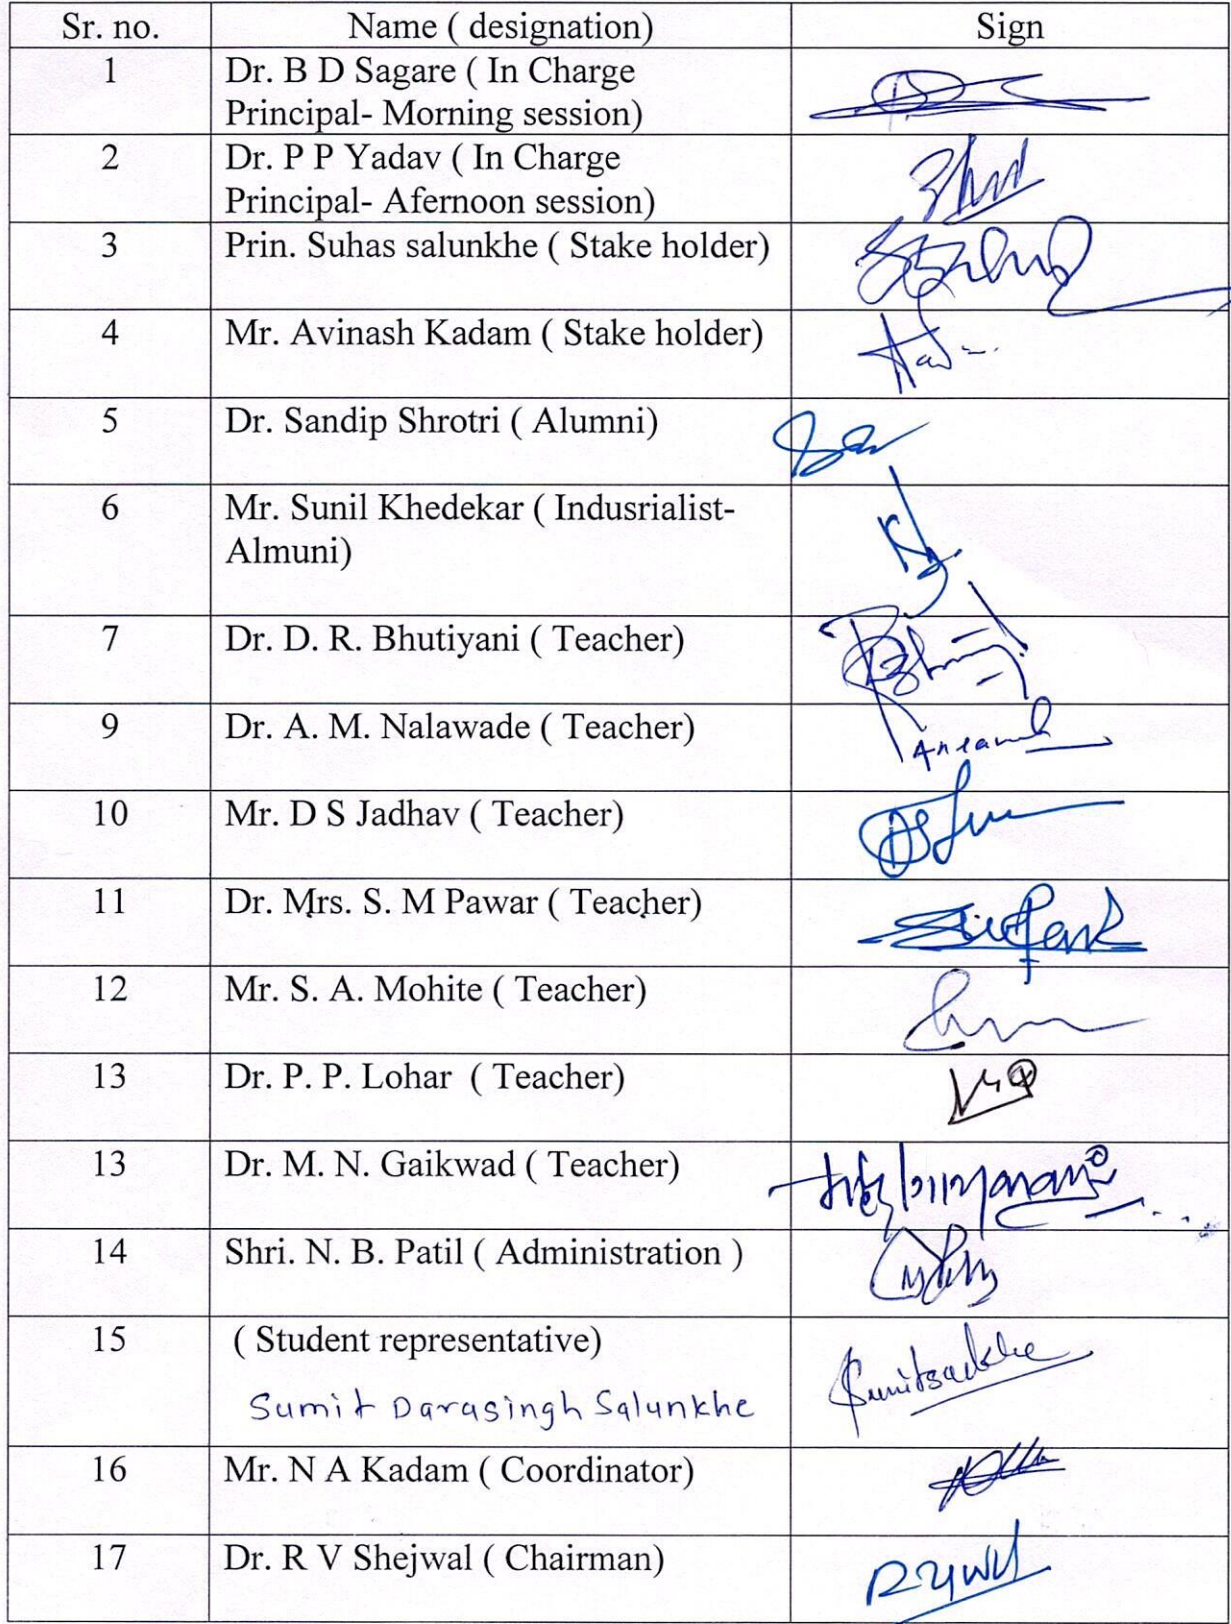 Sr. no. Name ( designation) Sign
1 Dr. B D Sagare ( In Charge
Principal- Morning session)
2 Dr. P P Yadav ( In Charge
Principal- Afernoon session)
3 Prin. Suhas salunkhe ( Stake holder)
4 Mr. Avinash Kadam ( Stake holder)
5 Dr. Sandip Shrotri ( Alumni)
6 Mr. Sunil Khedekar ( Indusrialist-
Almuni)
7 Dr. D. R. Bhutiyani ( Teacher)
9 Dr. A. M. Nalawade ( Teacher)
10 Mr. D S Jadhav ( Teacher)
11 Dr. Mrs. S. M Pawar ( Teacher)
12 Mr. S. A. Mohite ( Teacher)
13 Dr. P. P. Lohar ( Teacher)
13 Dr. M. N. Gaikwad ( Teacher)
14 Shri. N. B. Patil ( Administration )
15 ( Student representative)
Sumit Darasingh Salunkhe
16 Mr. N A Kadam ( Coordinator)
17 Dr. R V Shejwal ( Chairman)